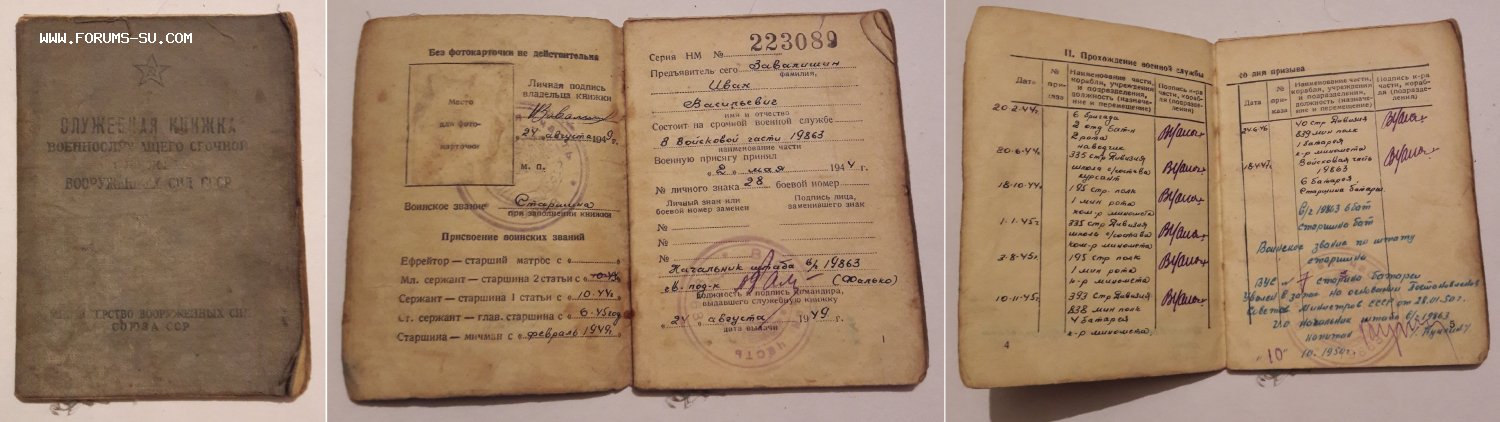 WWW.FORUMS-SU.COM
СЛУЖЕБНАЯ КНИЖКА
ВООРУЖЕННЫХ СИЛ СССР
МИНИСТЕРСТВО ВООРУЖЕННЫХ СИЛ
СОЮЗА ССР
Без фотокарточки не действительна
Место
для фото-
карточки
Личная подпись
владельца книжки
"24" августа 1949 г.
м. п.
Воинское звание Старшина
при заполнении книжки
Присвоение воинских званий
Ефрейтор — старший матрос с "
Мл. сержант — старшина 2 статьи с "
Сержант — старшина 1 статьи с " 10.44г
Ст. сержант — глав. старшина с " 6.45 год
Старшина — мичман с " февраль 1949г.
Серия НМ № 223089
Предъявитель сего Завалишин
фамилия,
Иван
Васильевич
имя и отчество
Состоит на срочной военной службе
В Войсковой части 19863
наименование части
Военную присягу принял
"2" мая 1944 г.
№ личного знака 28 боевой номер
Личный знак или
боевой номер заменен
Подпись лица,
заменившего знак
№
№
№
Начальник штаба в/ч 19863
гв. под-к (Фалько)
Должность и подпись командира,
выдавшего служебную книжку
"24" августа 1949 г.
дата выдачи
1
II. Прохождение военной службы
Дата
№ при-каза
Наименование части,
корабля, учреждения
и подразделения,
должность (назначе-
ние и перемещение)
Подпись к-ра
части, кораб-
ля (подразде-
ления)
20.2.44г.
6 бригада
2 отд бат-н
2 рота
наводчик
20.6.44г.
335 стр дивизия
школа с/состава
курсант
18.10.44г.
195 стр. полк
1 мин рота
ком-р миномета
1.1.45г.
335 стр дивизия
школа с/состава
ком-р миномета
3.8.45г.
195 стр. полк
1 мин рота
к-р миномета
10.11.45г.
393 стр дивизия
838 мин полк
4 батарея
к-р миномета
4
со дня призыва
Дата
№ при-каза
Наименование части,
корабля, учреждения
и подразделения,
должность (назначе-
ние и перемещение)
Подпись к-ра
части, кораб-
ля (подразде-
ления)
40 стр дивизия
839 мин полк
1 батарея
к-р миномета
Войсковая часть
19863
6 батарея
Старшина батареи
В/ч 19863 6 бат
старшина бат
Воинское звание по штату
старшина
ВУС №
старшина батареи
Уволен в запас на основании Постановления
Советов Министров СССР от 28.01.50г.
Начальник штаба в/ч 19863
капитан
"10" 10. 1950г.
5